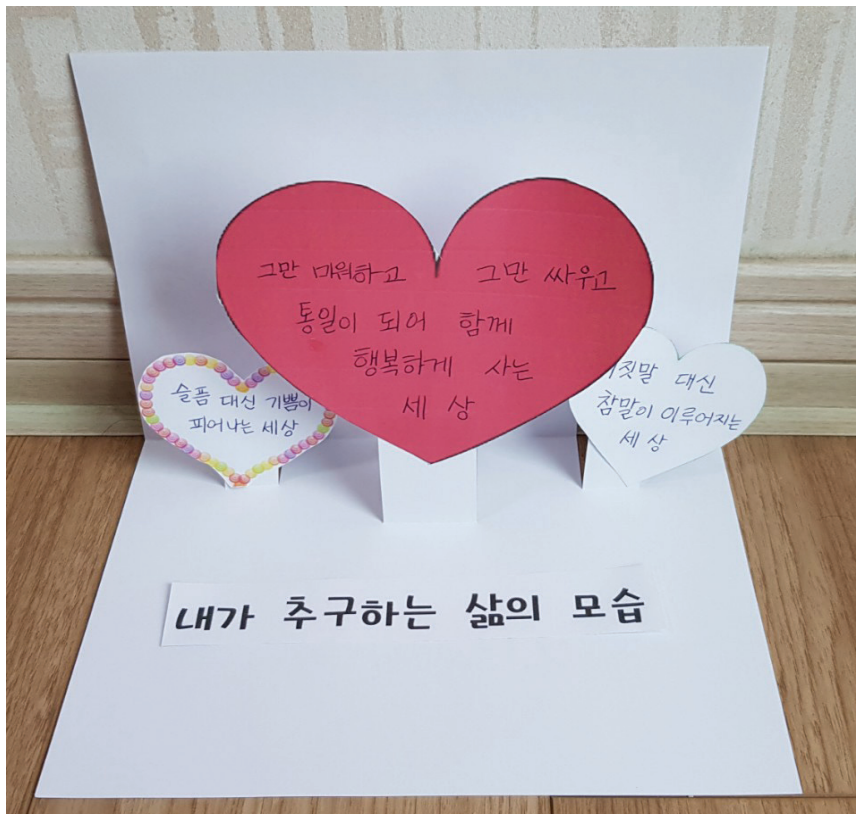 그만 미워하고 그만 싸우고
통일이 되어 함께
행복하게 사는
세상
슬픔 대신 기쁨이
피어나는 세상
짓말 대신
참말이 이루어지는
세상
내가 추구하는 삶의 모습